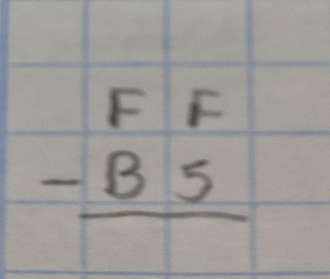 F F
- B 5